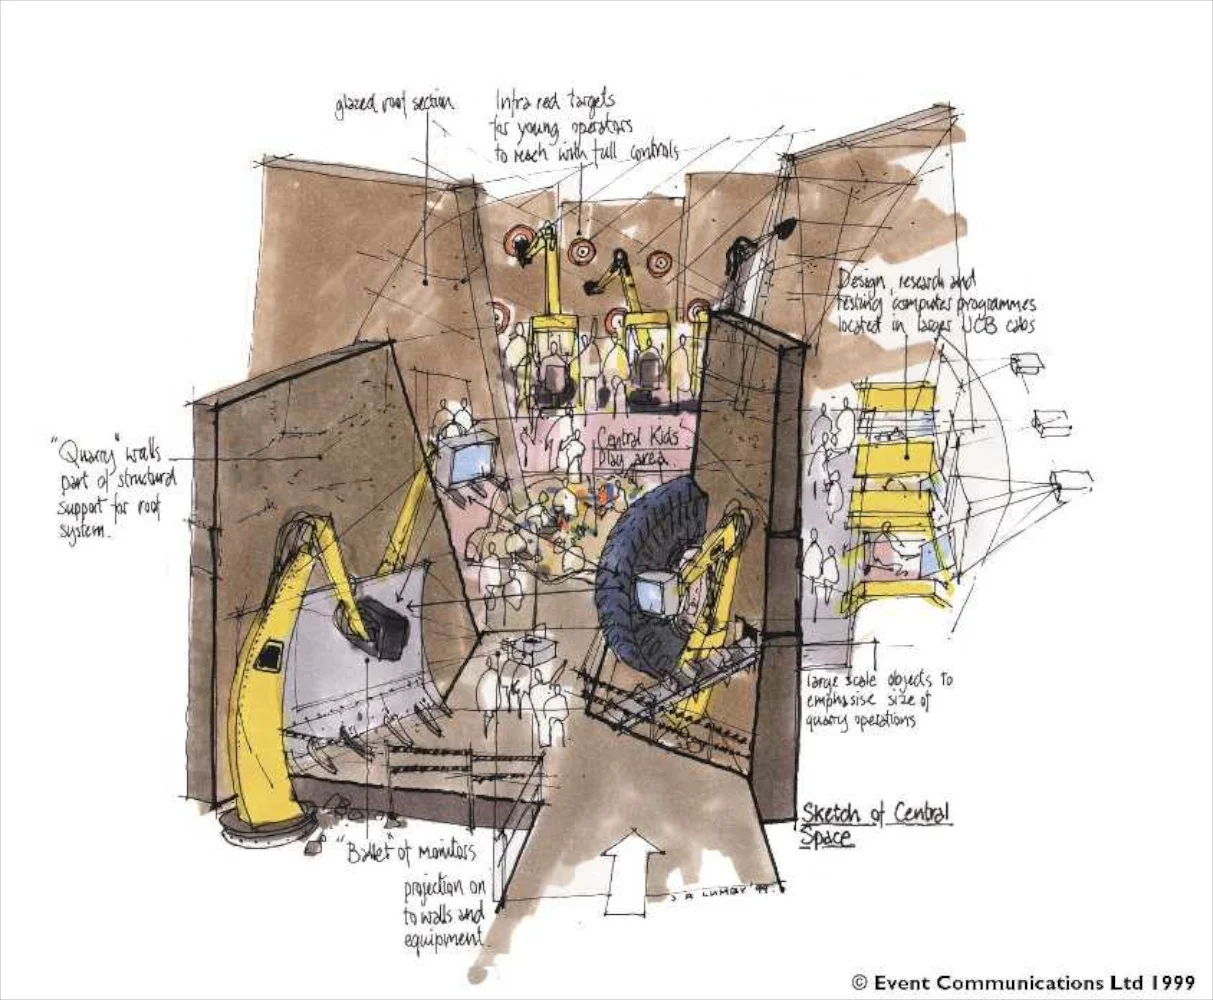 glazed roof section
Infra red targets
for young operators
to reach with full controls
Design, research and
testing computer programmes
located in larger JCB cabs
"Quarry" walls
part of structural
support for roof
system.
Central Kids'
play area.
large scale objects to
emphasise size of
quarry operations
Sketch of Central
Space
"Ballet" of monitors
projection on
to walls and
equipment.
'99.
© Event Communications Ltd 1999